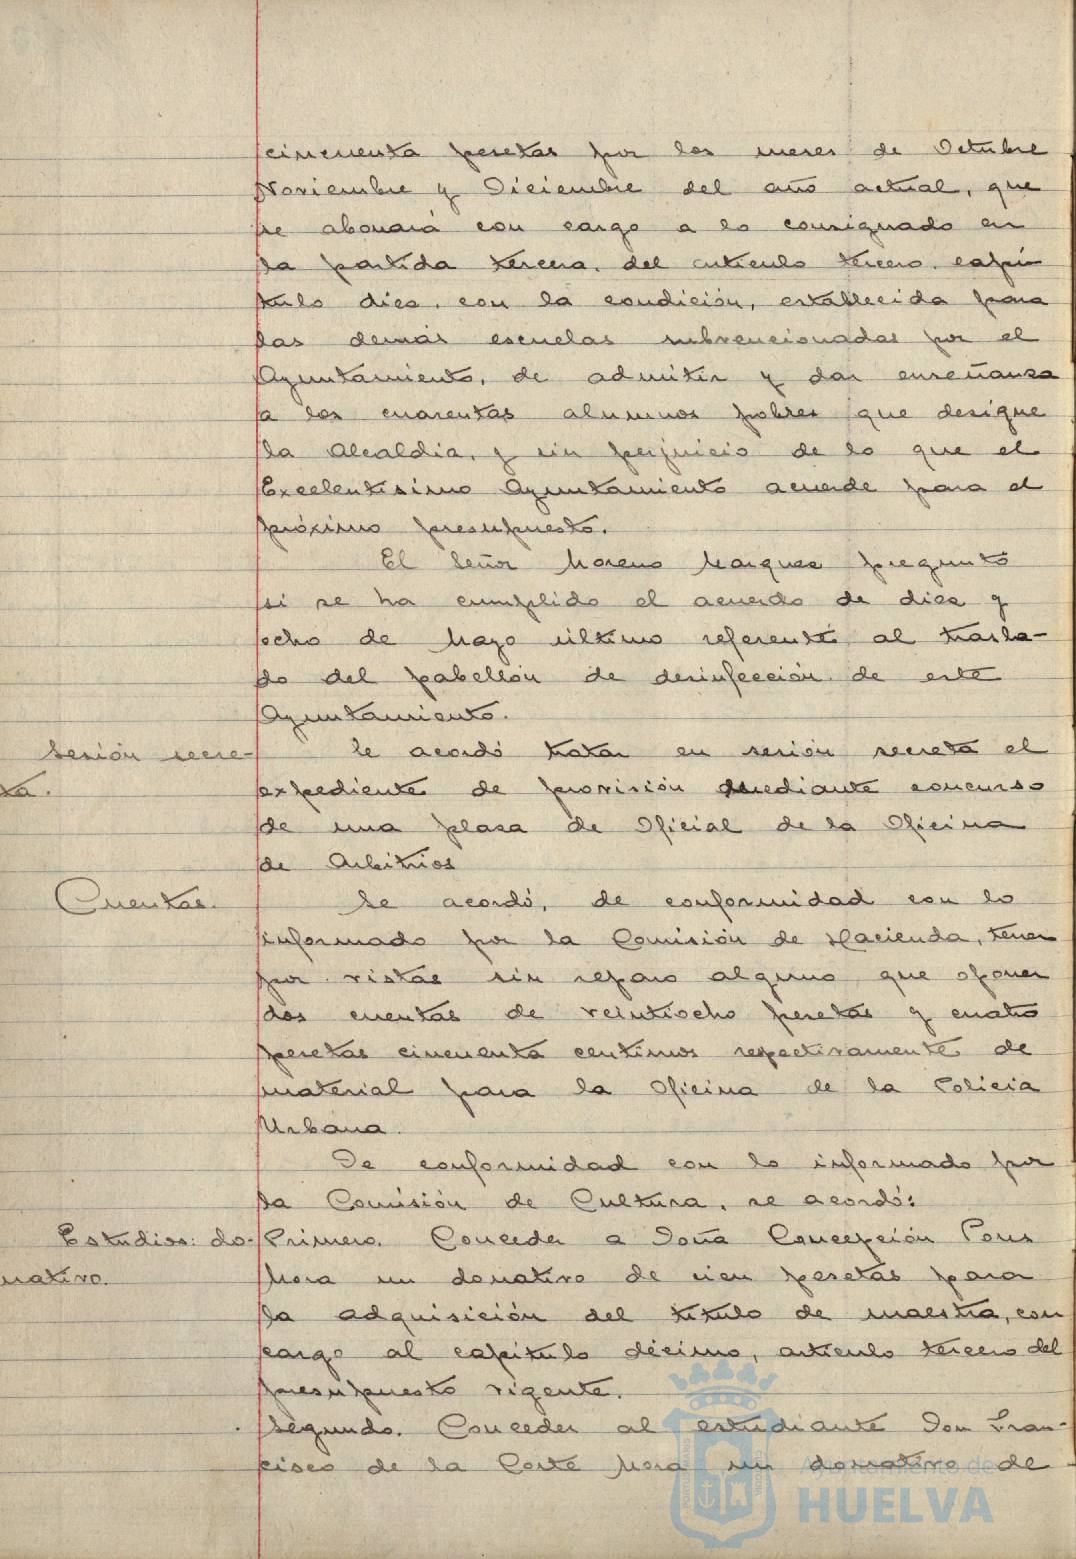 cincuenta pesetas por los meses de Octubre
Noviembre y Diciembre del año actual, que
se abonará con cargo a lo consignado en
la partida tercera, del artículo tercero, capí-
tulo diez, con la condición, establecida para
las demás escuelas subvencionadas por el
Ayuntamiento, de admitir y dar enseñanza
a los cuarentas alumnos pobres que designe
la Alcaldía, y sin perjuicio de lo que el
Excelentísimo Ayuntamiento acuerde para el
próximo presupuesto.
El Señor Moreno Marquez preguntó
si se ha cumplido el acuerdo de diez y
ocho de Mayo último referente al trasla-
do del pabellón de desinfección de este
Ayuntamiento.
Sesión secre-
ta.
Se acordó tratar en sesión secreta el
expediente de provisión mediante concurso
de una plaza de Oficial de la Oficina
de Arbitrios
Cuentas.
Se acordó, de conformidad con lo
informado por la Comisión de Hacienda, tener
por vistas sin reparo alguno que oponer
dos cuentas de veintiocho pesetas y cuatro
pesetas cincuenta centimos respectivamente de
material para la Oficina de la Policia
Urbana.
De conformidad con lo informado por
la Comisión de Cultura, se acordó:
Estudios: do-
nativo.
Primero. Conceder a Doña Concepción Pons
Mora un donativo de cien pesetas para
la adquisición del título de maestra, con
cargo al capítulo décimo, artículo tercero del
presupuesto vigente.
Segundo. Conceder al estudiante Don Fran-
cisco de la Corte Mora un donativo de
Ayuntamiento de
HUELVA